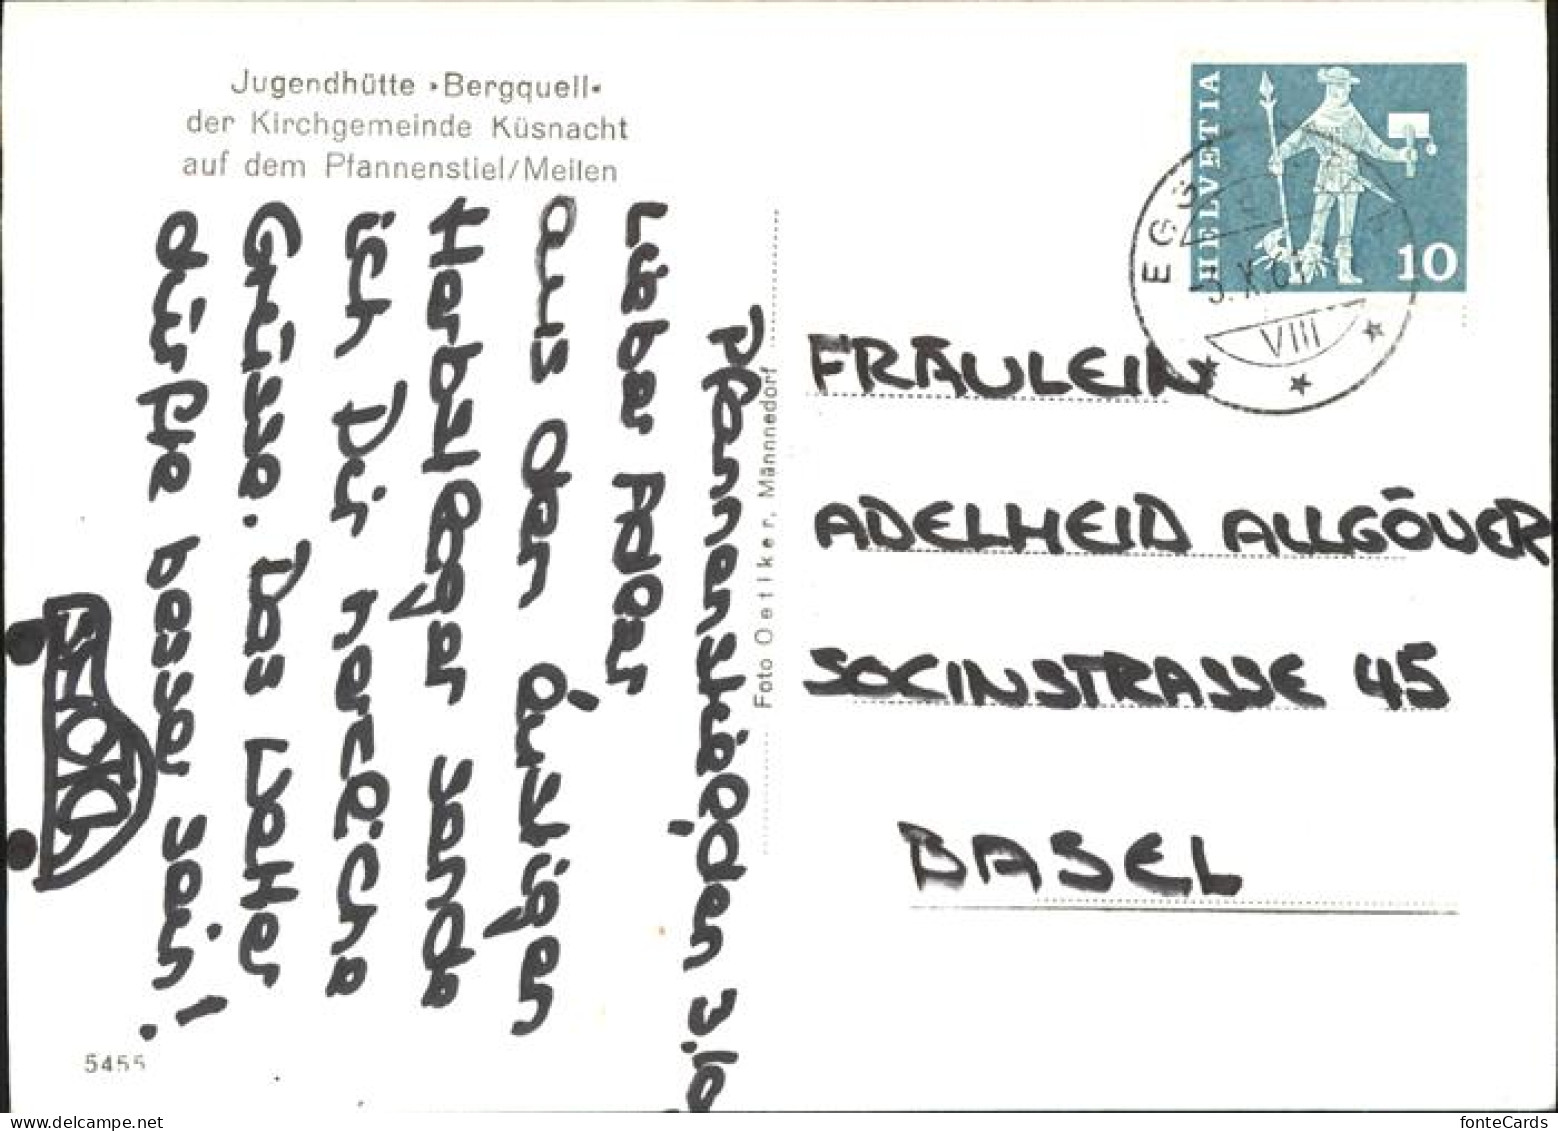 Jugendhütte »Bergquell«
der Kirchgemeinde Küsnacht
auf dem Pfannenstiel/Meilen
Pfannenstiel, den 3.10
Aus den
Herbstlager sende
ich Dir herzliche
Grüsse. Das Wetter
dürfte besser sein!
5455
Foto Oetiker, Männedorf
HELVETIA
10
EG
X.6
VIII
FRÄULEIN
ADELHEID ALLGÖWER
SOCINSTRASSE 45
BASEL
fonteCards